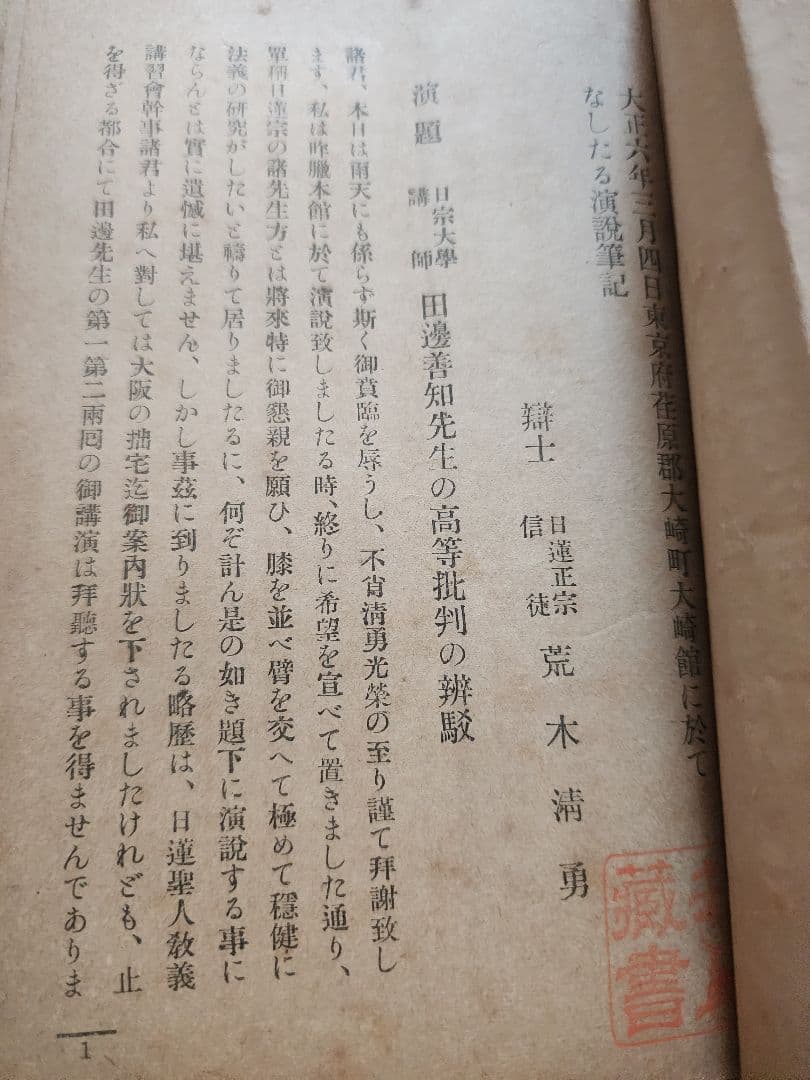 大正六年三月四日東京府荏原郡大崎町大崎館に於て
なしたる演說筆記
辯士 日蓮正宗信徒 荒木淸勇
演題 日宗大學講師 田邊善知先生の高等批判の辨駁
諸君、本日は雨天にも係らず斯く御賁臨を辱うし、不肖淸勇光榮の至り謹て拜謝致し
ます、私は昨臘本館に於て演說致しましたる時、終りに希望を宣べて置きました通り、
單稱日蓮宗の諸先生方とは將來特に御懇親を願ひ、膝を並べ臂を交へて極めて穩健に
法義の硏究がしたいと禱りて居りましたるに、何ぞ計ん是の如き題下に演說する事に
ならんとは實に遺憾に堪えません、しかし事茲に到りましたる略歷は、日蓮聖人敎義
講習會幹事諸君より私へ對しては大阪の拙宅迄御案內狀を下されましたけれども、止
を得ざる都合にて田邊先生の第一第二兩囘の御講演は拜聽する事を得ませんでありま
1
藏書